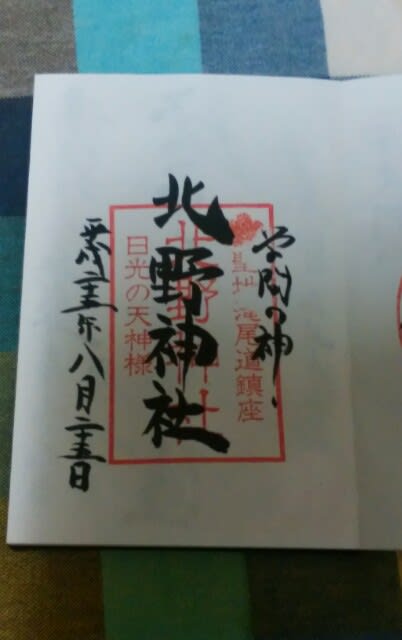 学問の神
北野神社
平成二十五年八月二十五日
尾道鎮座
北野神社
日光の天神様